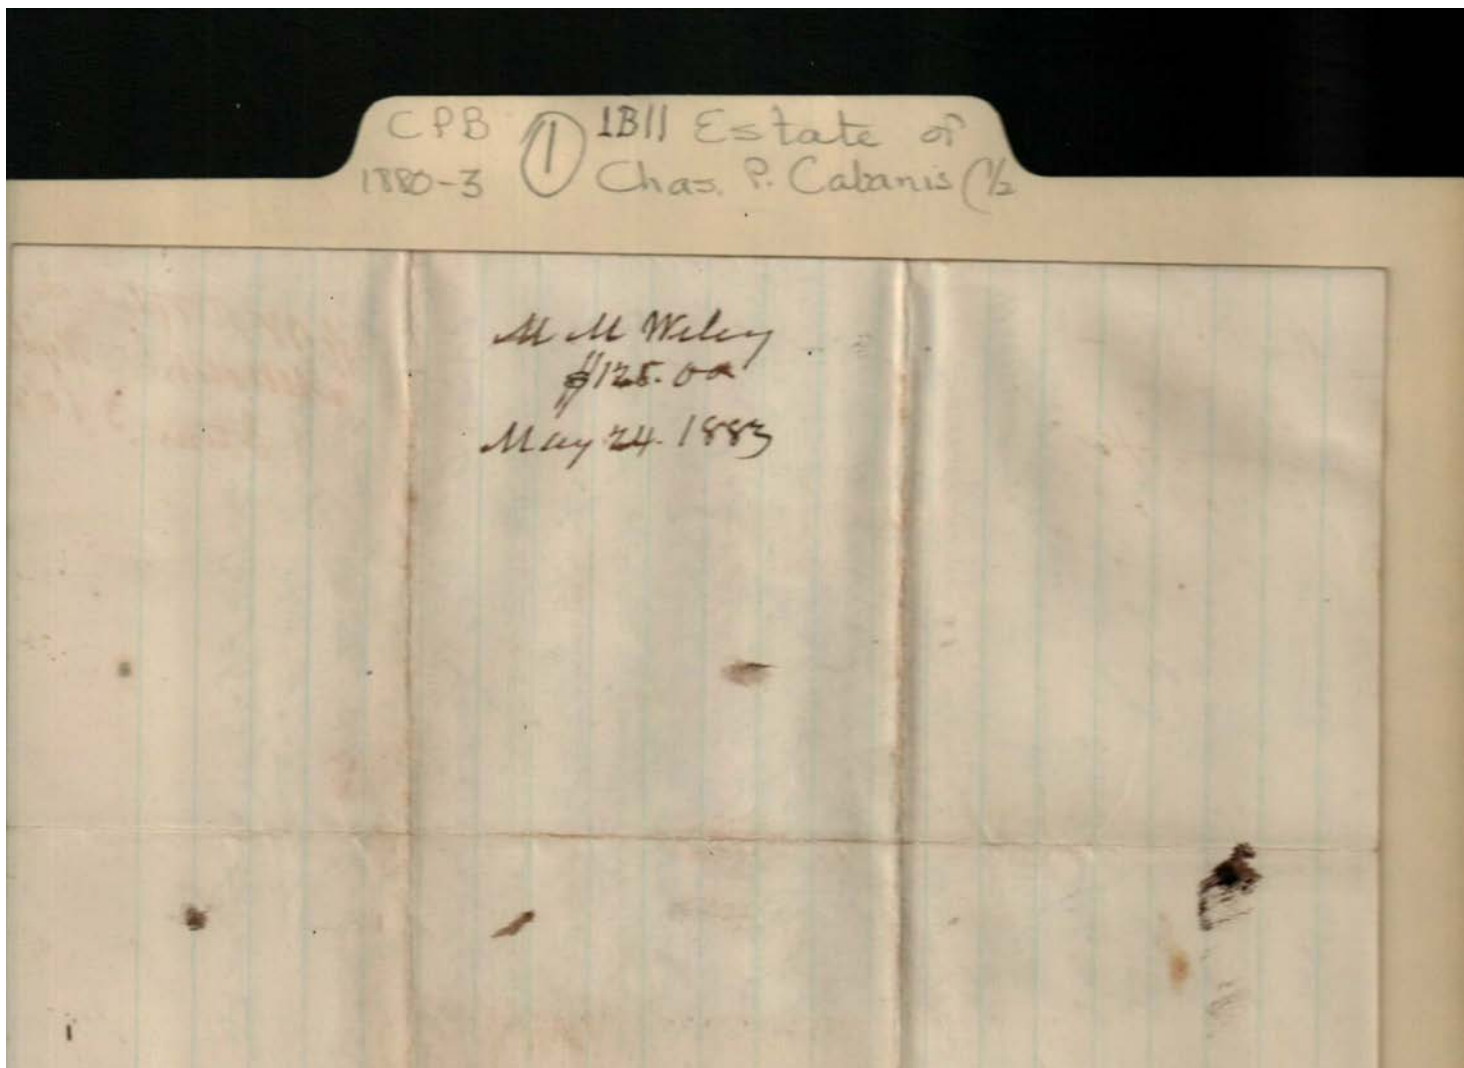 CPB ① 1B11 Estate of
1880-3 Chas. P. Cabanis (1/2
M M Wiley
$125.00
May 24. 1883